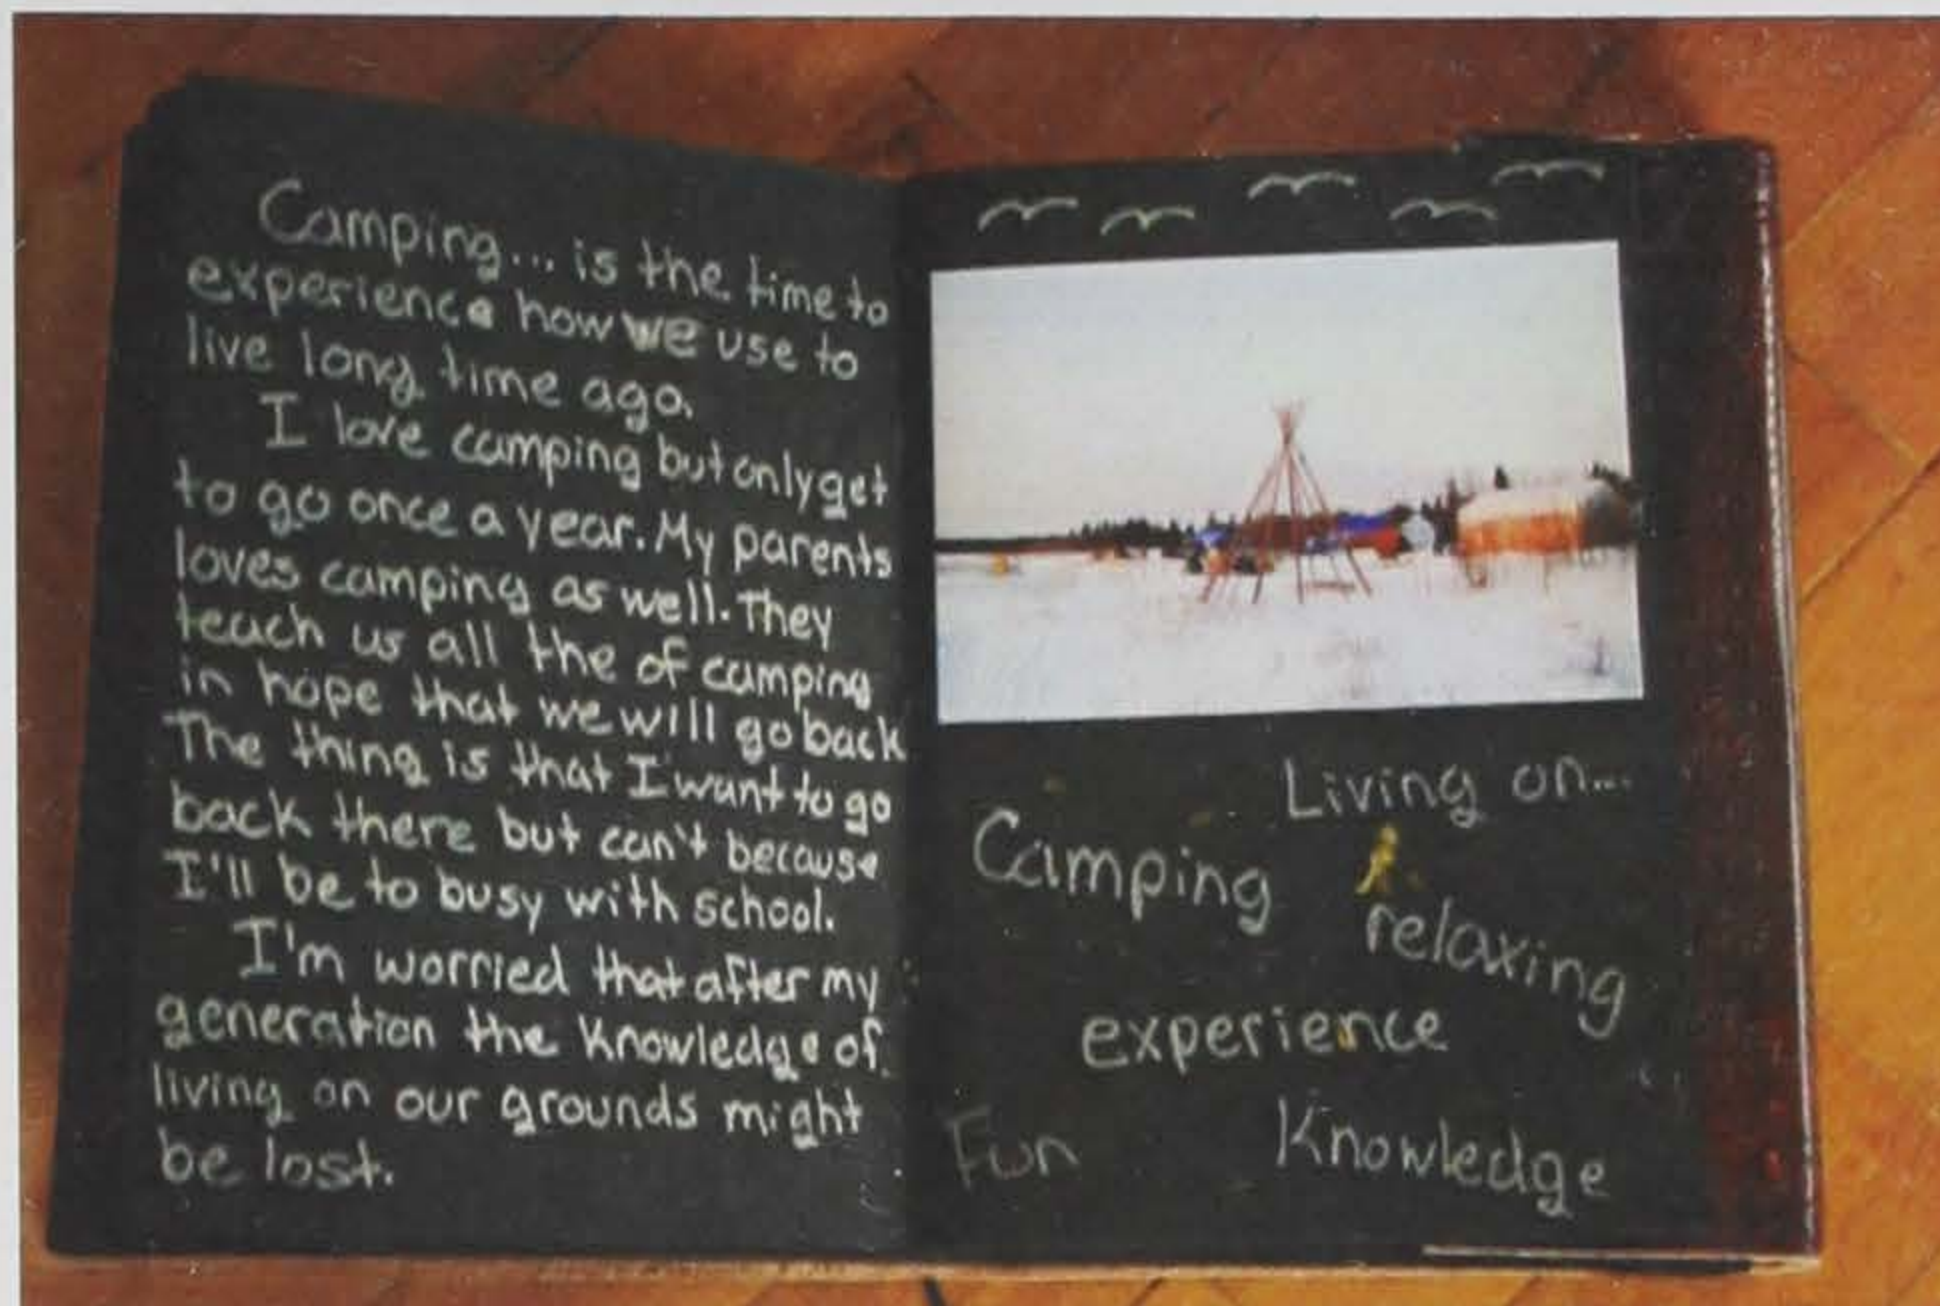 Camping... is the time to
experience how we use to
live long time ago.
I love camping but only get
to go once a year. My parents
loves camping as well. They
teach us all the of camping
in hope that we will go back
The thing is that I want to go
back there but can't because
I'll be to busy with school.
I'm worried that after my
generation the knowledge of
living on our grounds might
be lost.
Living on...
Camping
relaxing
experience
Fun
Knowledge